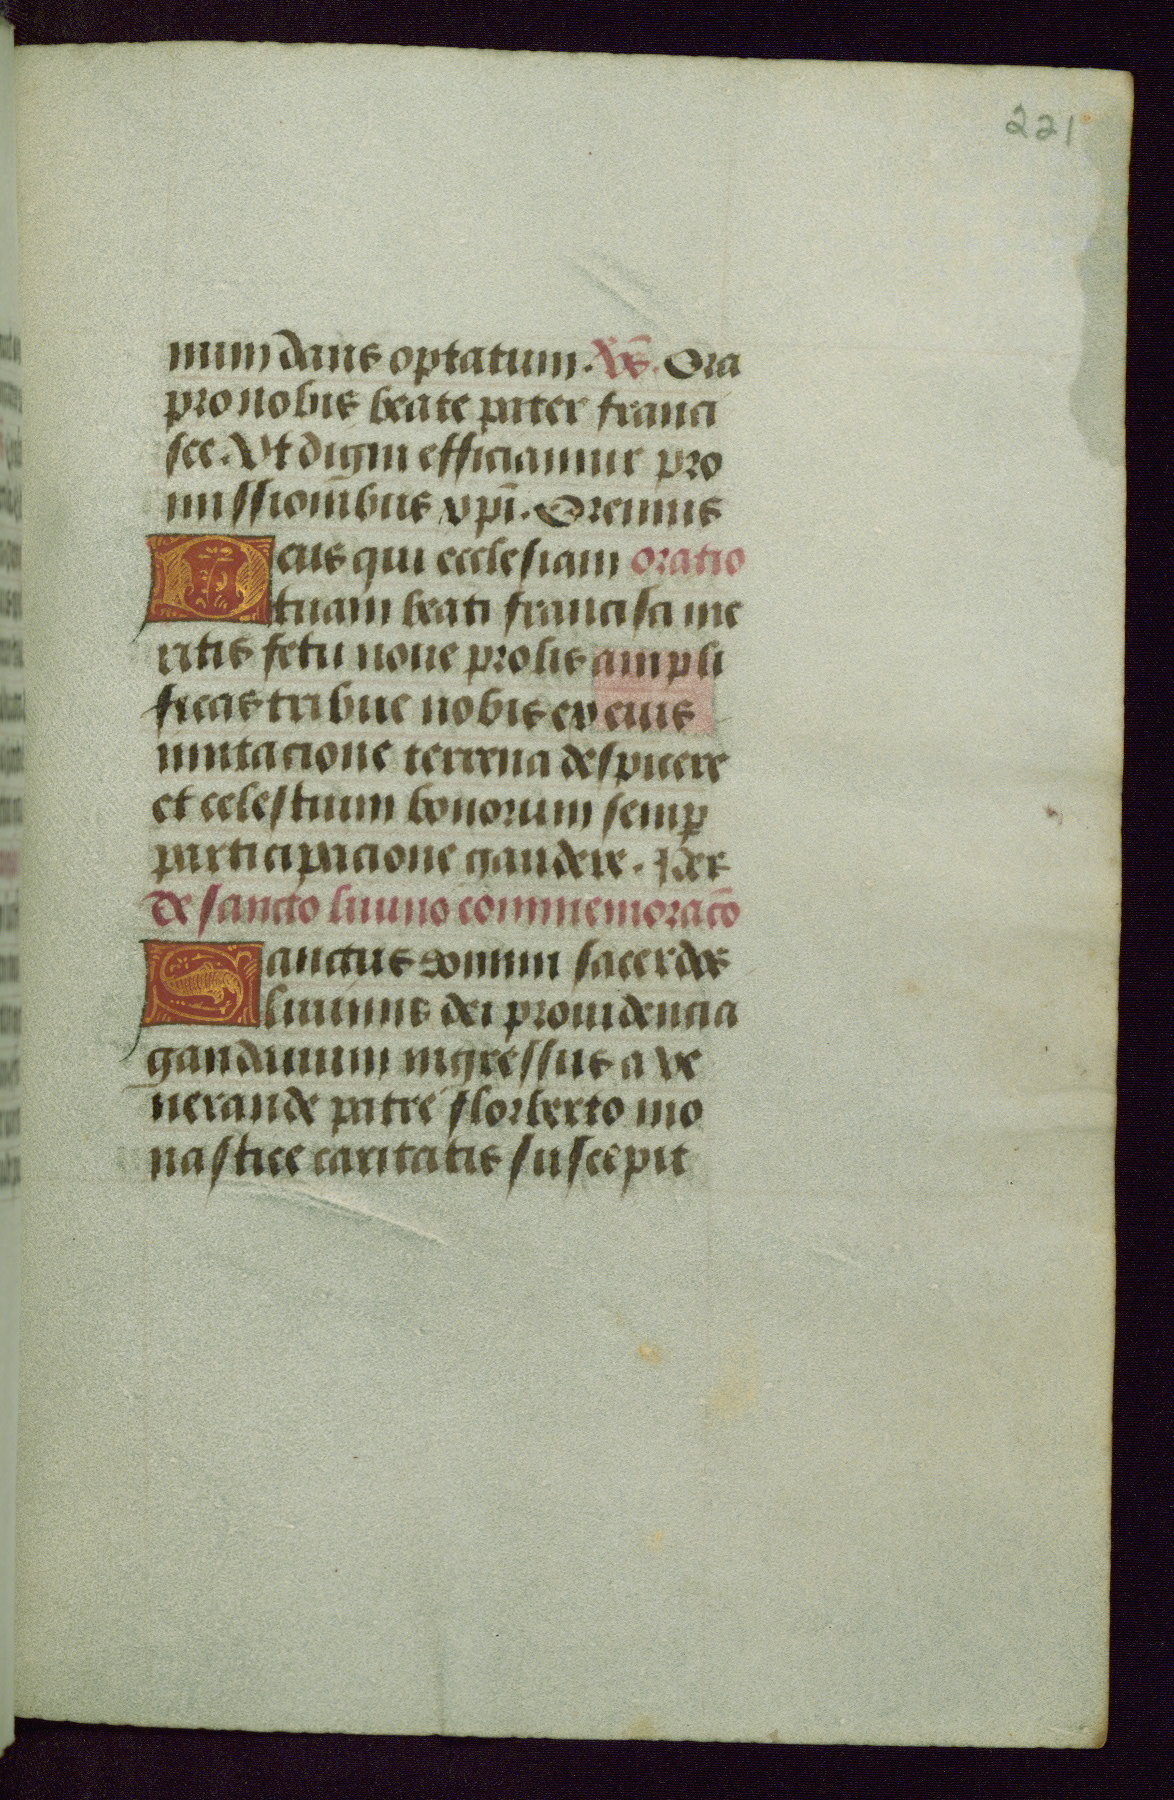 221
num dans optatum. Vs̄. Ora
pro nobis beate pater franci
sce. Vt digni efficiamur pro
missionibus xpī. Oremus
Deus qui ecclesiam oratio
tuam beati francisci me
ritis fetu noue prolis ampli
ficas tribue nobis ex eius
imitacione terrena despicere
et celestium bonorum semꝑ
participacione gaudere. Per
de sancto liuino commemoracō
Sanctus domini sacerdos
liuinus dei prouidencia
gandauum ingressus a ve
nerande patre florberto mo
nastice caritatis suscepit